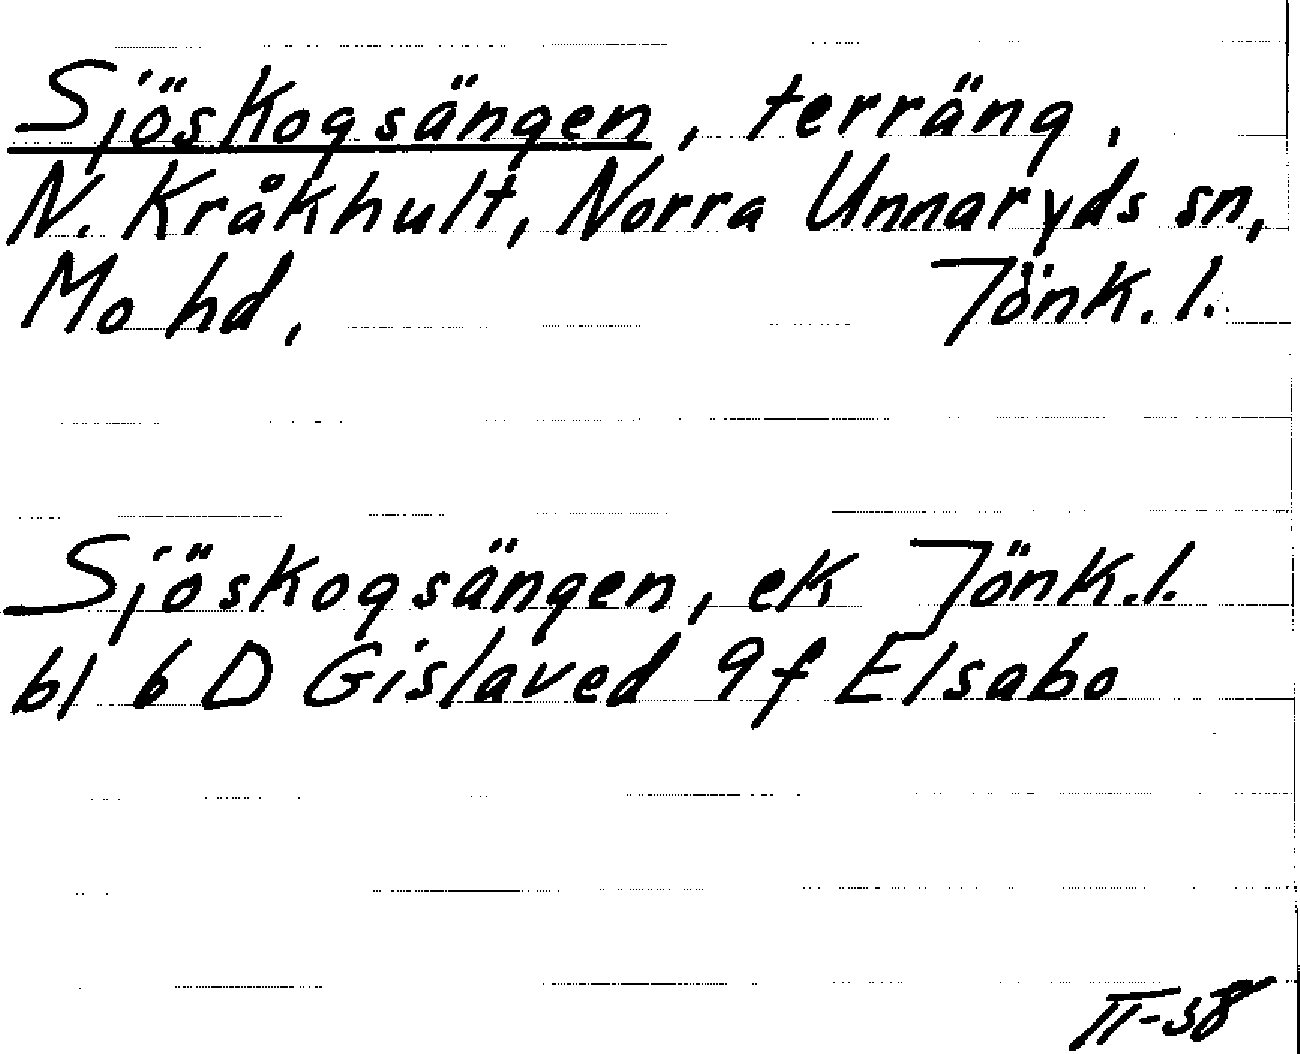 Sjöskogsängen, terräng,
N. Kråkhult, Norra Unnaryds sn,
Mo hd, Jönk. l.
Sjöskogsängen, ek Jönk. l.
bl 6 D Gislaved 9f Elsabo